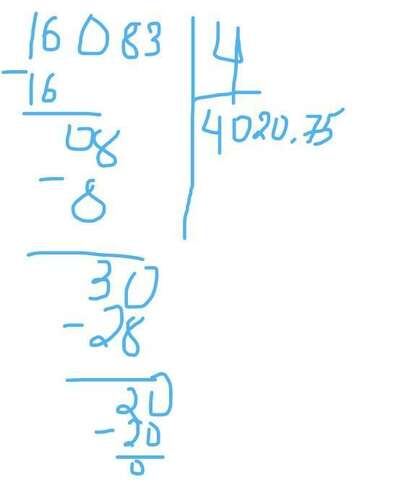 16083 4
- 16 4020.75
08
- 8
30
- 28
20
- 20
0